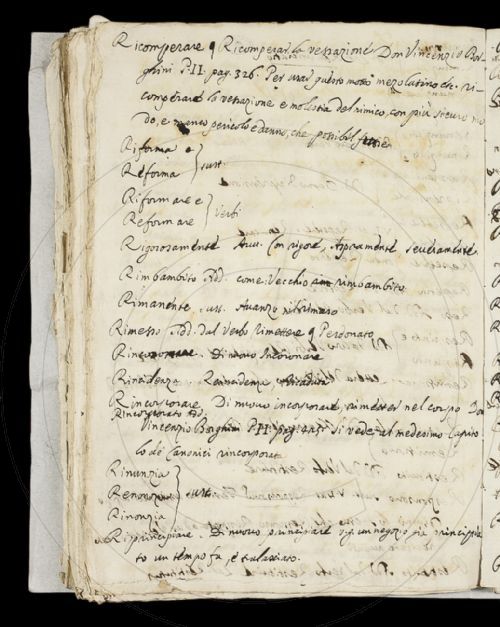 Ricomperare q Ricomperar la vessazione Don Vincenzio Bor-
ghini P. II. pag. 326. Per usar questo motto mezo latino che ri-
comperare la vessazione e molestia del nimico, con più sicuro mo
do, e manco pericolo e danno, che possibil fusse
Riforma e
Reforma } sust.
Riformare e
Reformare } Verbi
Rigorosamente Avv. Con rigore, Aspramente severamente
Rimbambito Add. come Vecchio rimbambito
Rimanente sust. Avanzo
Rimesso Add. dal Verbo Rimettere q Perdonato
Rincoronare. Di nuovo Incoronare
Rincidenza. Reincidenza Ricaduta
Rincorporare Di nuovo incorporare, rimetter nel corpo Don
Rincorporato Add.
Vincenzio Borghini P. II. pag. si vede al medesimo Capito
lo de Canonici rincorporati
Rinunzia
Renonzia } sust.
Rinonzia
Riprincipiare. Di nuovo principiare un negozio già principia
to un tempo fa, e tralasciato.